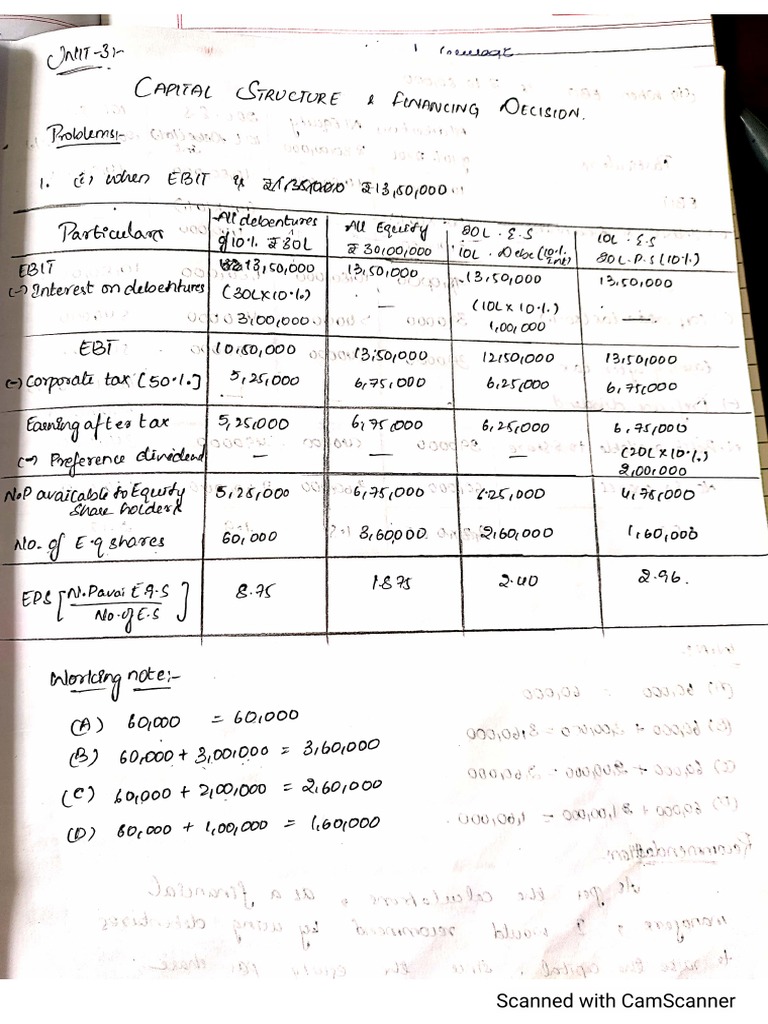 UNIT-3:-
CAPITAL STRUCTURE & FINANCING DECISION.
Problems:-
1. (i) when EBIT is ₹13,50,000
Particulars | All debentures of 10% ₹30L | All Equity ₹30,00,000 | 20L. E.S 10L. Debe (10% Int) | 10L. E.S 20L. P.S (10%)
EBIT 13,50,000 13,50,000 13,50,000 13,50,000
(-) Interest on debentures (30L×10%) — (10L×10%) —
3,00,000 1,00,000
EBT 10,50,000 13,50,000 12,50,000 13,50,000
(-) Corporate tax [50%] 5,25,000 6,75,000 6,25,000 6,75,000
Earning after tax 5,25,000 6,75,000 6,25,000 6,75,000
(-) Preference dividend — — — (20L×10%)
2,00,000
N.P available to Equity Share holders 5,25,000 6,75,000 6,25,000 4,75,000
No. of E.q shares 60,000 3,60,000 2,60,000 1,60,000
EPS [N.P avai E.S / No. of E.S] 8.75 1.875 2.40 2.96.
Working note:-
(A) 60,000 = 60,000
(B) 60,000 + 3,00,000 = 3,60,000
(C) 60,000 + 2,00,000 = 2,60,000
(D) 60,000 + 1,00,000 = 1,60,000
Scanned with CamScanner